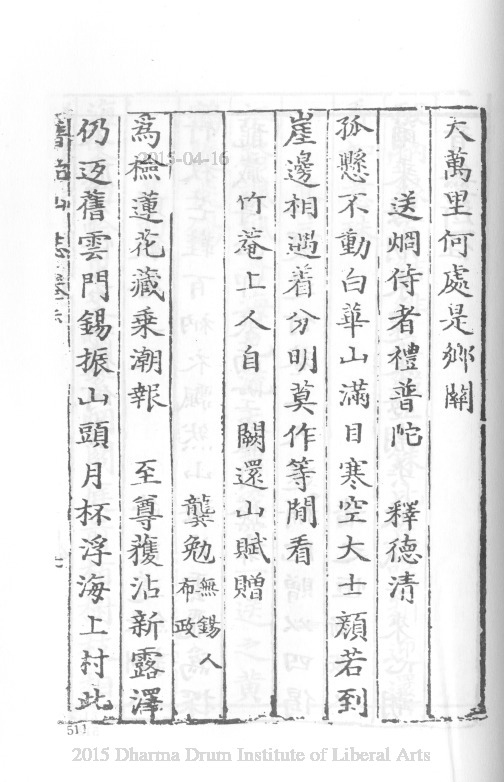 大萬里何處是鄉關
送烱侍者禮普陀 釋德清
孤懸不動白華山滿目寒空大士顏若到
崖邊相遇着分明莫作等閒看
竹菴上人自 闕還山賦贈
龔勉 無錫人布政
為檢蓮花藏乘潮報 至尊獲沾新露澤
仍返舊雲門錫振山頭月杯浮海上村此
511
2015-04-16
2015 Dharma Drum Institute of Liberal Arts